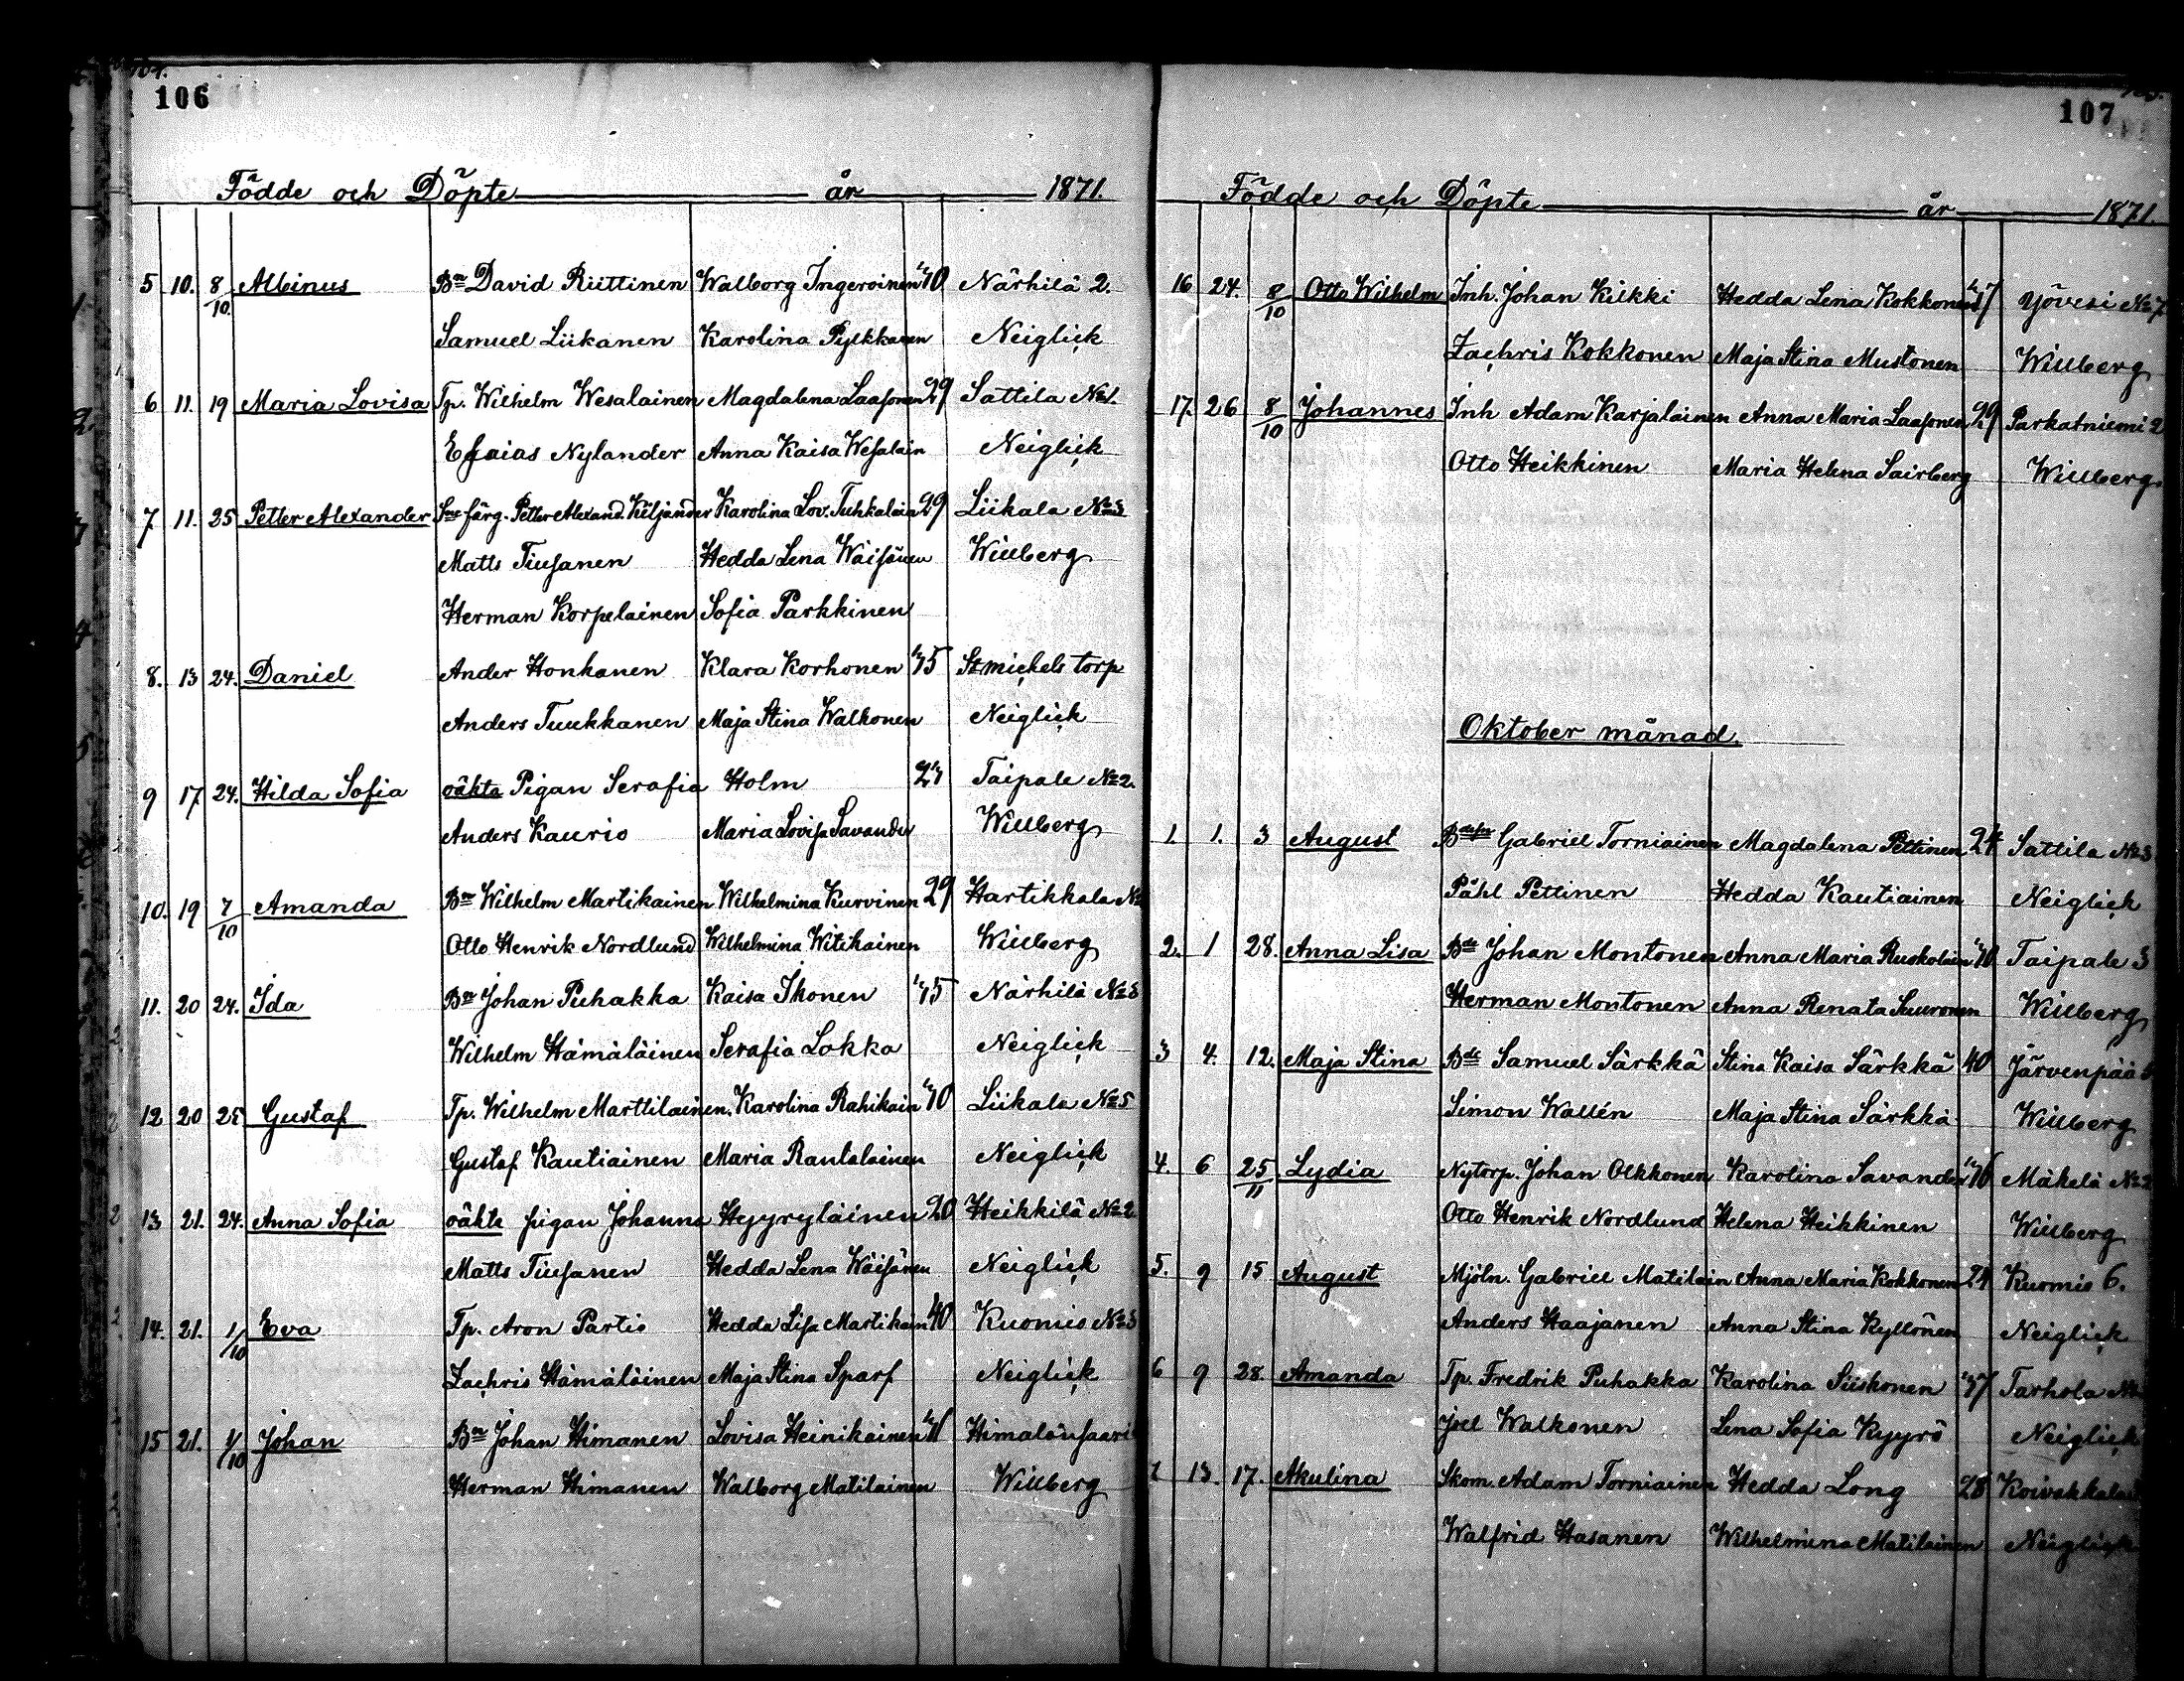 106
Födde och Döpte år 1871.
5 10. 8/10. Albinus Bn David Riittinen Walborg Ingeroinen 40 Närhilä 2.
Samuel Liikanen Karolina Pylkkanen Neiglick
6 11. 19 Maria Lovisa Tp. Wilhelm Wesalainen Magdalena Laasonen 29 Sattila No 1.
Esaias Nylander Anna Kaisa Wesalain Neiglick
7 11. 25 Petter Alexander färg. Petter Alexand. Kiljander Karolina Lov. Tuhkalain 29 Liikala No 3
Matts Tiusanen Hedda Lena Wäisänen Willberg
Herman Korpelainen Sofia Parkkinen
8. 13 24. Daniel Ander Honkanen Klara Korhonen 45 St michels torp
Anders Tuukkanen Maja Stina Walkonen Neiglick
9 17 24. Hilda Sofia oäkta Pigan Serafia Holm Taipale No 2.
Anders Kaurio Maria Lovisa Savander Willberg
10. 19 7/10 Amanda Bn Wilhelm Martikainen Wilhelmina Kurvinen 29 Hartikkala No
Otto Henrik Nordlund Wilhelmina Witikainen Willberg
11. 20 24. Ida Bn Johan Puhakka Kaisa Ikonen 45 Närhilä No 3
Wilhelm Hämäläinen Serafia Lokka Neiglick
12 20 25 Gustaf Tp. Wilhelm Marttilainen, Karolina Rahikain 40 Liikala No 5
Gustaf Kautiainen Maria Rantalainen Neiglick
13 21. 24. Anna Sofia oäkta pigan Johanna Hyyryläinen 20 Heikkilä No 2
Matts Tiusanen Hedda Lena Wäisänen Neiglick
14. 21. 1/10 Eva Tp. Aron Partio Hedda Lisa Martikain 40 Kuomio No 3
Zachris Hämäläinen Maja Stina Sparf Neiglick
15 21. 1/10 Johan Bn Johan Himanen Lovisa Heinikainen Himalansaari
Herman Himanen Walborg Matilainen Willberg
107
Födde och Döpte år 1871.
16 24. 8/10 Otto Wilhelm Inh. Johan Kilkki Hedda Lena Kokkonen Yövesi No 7
Zachris Kokkonen Maja Stina Mustonen Willberg
17. 26 8/10 Johannes Inh Adam Karjalainen Anna Maria Laasonen 29 Parkatniemi 2
Otto Heikkinen Maria Helena Sairberg Willberg.
Oktober månad.
1. 1. 3 August Gabriel Torniainen Magdalena Pettinen 24 Sattila No 3
Påhl Pettinen Hedda Kautiainen Neiglick
2. 1 28. Anna Lisa Bde Johan Montonen Anna Maria Ruokolain 40 Taipale 3
Herman Montonen Anna Renata Suuronen Willberg
3 4. 12. Maja Stina Bde Samuel Särkkä Stina Kaisa Särkkä 40 Järvenpää
Simon Wallén Maja Stina Särkkä Willberg
4. 6 25/11 Lydia Nytorp. Johan Olkkonen Karolina Savander Mäkelä No 2
Otto Henrik Nordlund Helena Heikkinen Willberg
5. 9 15 August Mjöln. Gabriel Matilain Anna Maria Kokkonen 24 Kuomio 6.
Anders Haajanen Anna Stina Kyllönen Neiglick
6 9 28. Amanda Tp. Fredrik Puhakka Karolina Siiskonen Tarhola No
Joel Walkonen Lena Sofia Kyyrö Neiglick
13. 17. Akulina Skom. Adam Torniainen Hedda Long 28 Koivakkala
Walfrid Hasanen Wilhelmina Matilainen Neiglick